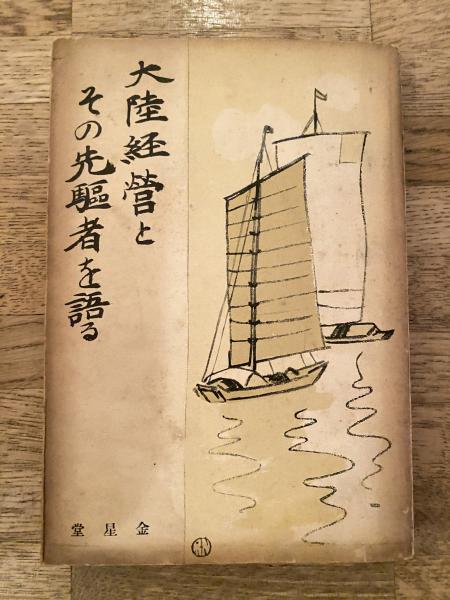 大陸経營と
その先驅者を語る
堂星金